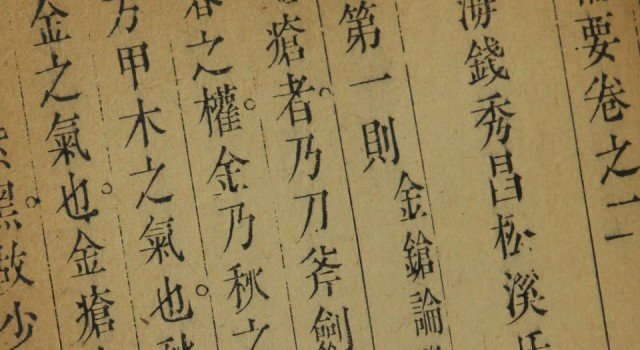 要卷之二
海錢秀昌松溪氏
第一則 金鎗論
瘡者。乃刀斧劍
之權。金乃秋之
方甲木之氣也。秋
金之氣也。金瘡
黑。故少